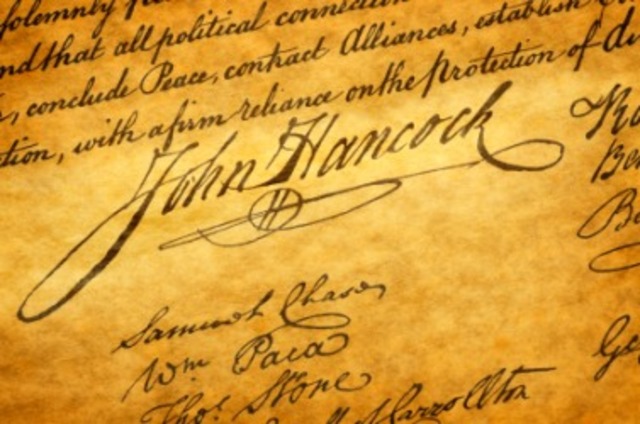 solemnly
and that all political connection
conclude Peace, contract Alliances, establish
tion, with a firm reliance on the Protection of di
John Hancock
Samuel Chase
Wm. Paca
Thos. Stone
Carrollton